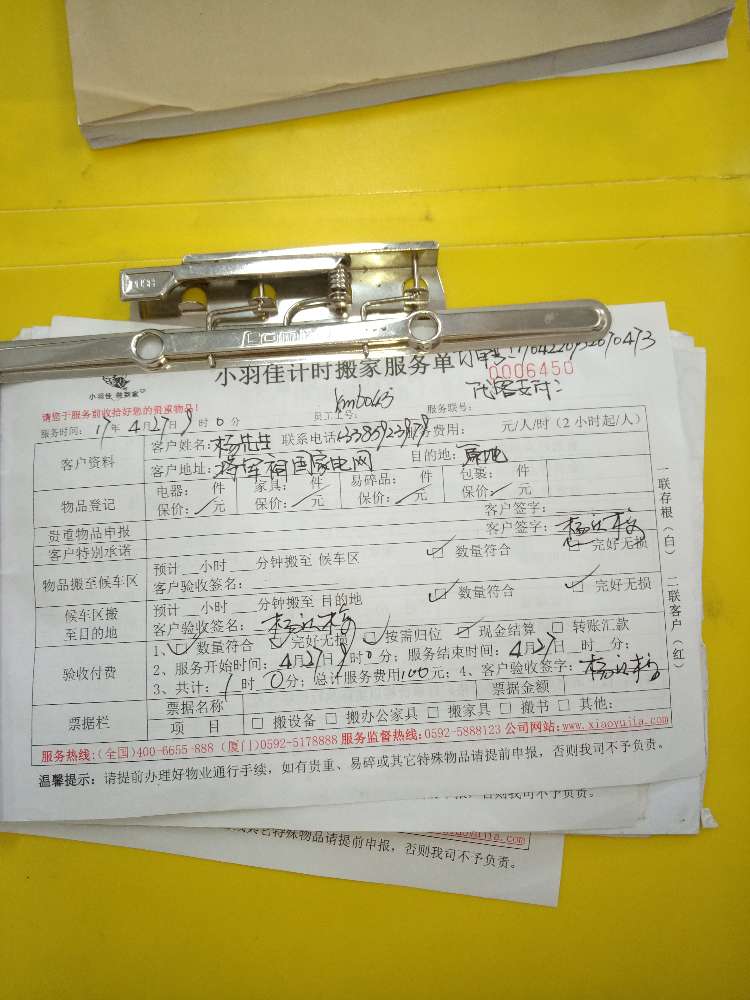 小羽佳计时搬家服务单
0006450
小羽佳 搬到家
请您于服务前收拾好您的贵重物品!
员工工号: km6043
服务联号:
服务时间: 17 年 4 月 27 日 9 时 0 分
客户资料
客户姓名: 杨先生 联系电话 费用: 元/人/时 (2 小时起/人)
客户地址: 将军祠国家电网 目的地: 原地
物品登记
电器: 件 家具: 件 易碎品: 件 包裹: 件
保价: 元 保价: 元 保价: 元 保价: 元
贵重物品申报 客户签字:
客户特别承诺 客户签字:
物品搬至候车区
预计 小时 分钟搬至 候车区 数量符合 完好无损
客户验收签名:
候车区搬至目的地
预计 小时 分钟搬至 目的地 数量符合 完好无损
客户验收签名:
验收付费
1、 数量符合 完好无损 按需归位 现金结算 转账汇款
2、服务开始时间: 4月27日9时0分; 服务结束时间: 4月27日 时 分;
3、共计: 1 时 0分; 总计服务费用100元; 4、客户验收签字:
票据栏
票据名称 票据金额
项 目 搬设备 搬办公家具 搬家具 搬书 其他:
服务热线:(全国)400-6655-888 (厦门)0592-5178888 服务监督热线:0592-5888123 公司网站:www.xiaoyujia.com
温馨提示: 请提前办理好物业通行手续, 如有贵重、易碎或其它特殊物品请提前申报, 否则我司不予负责。
一联存根(白) 二联客户(红)
否则我司不予负责。
其它特殊物品请提前申报, 否则我司不予负责。